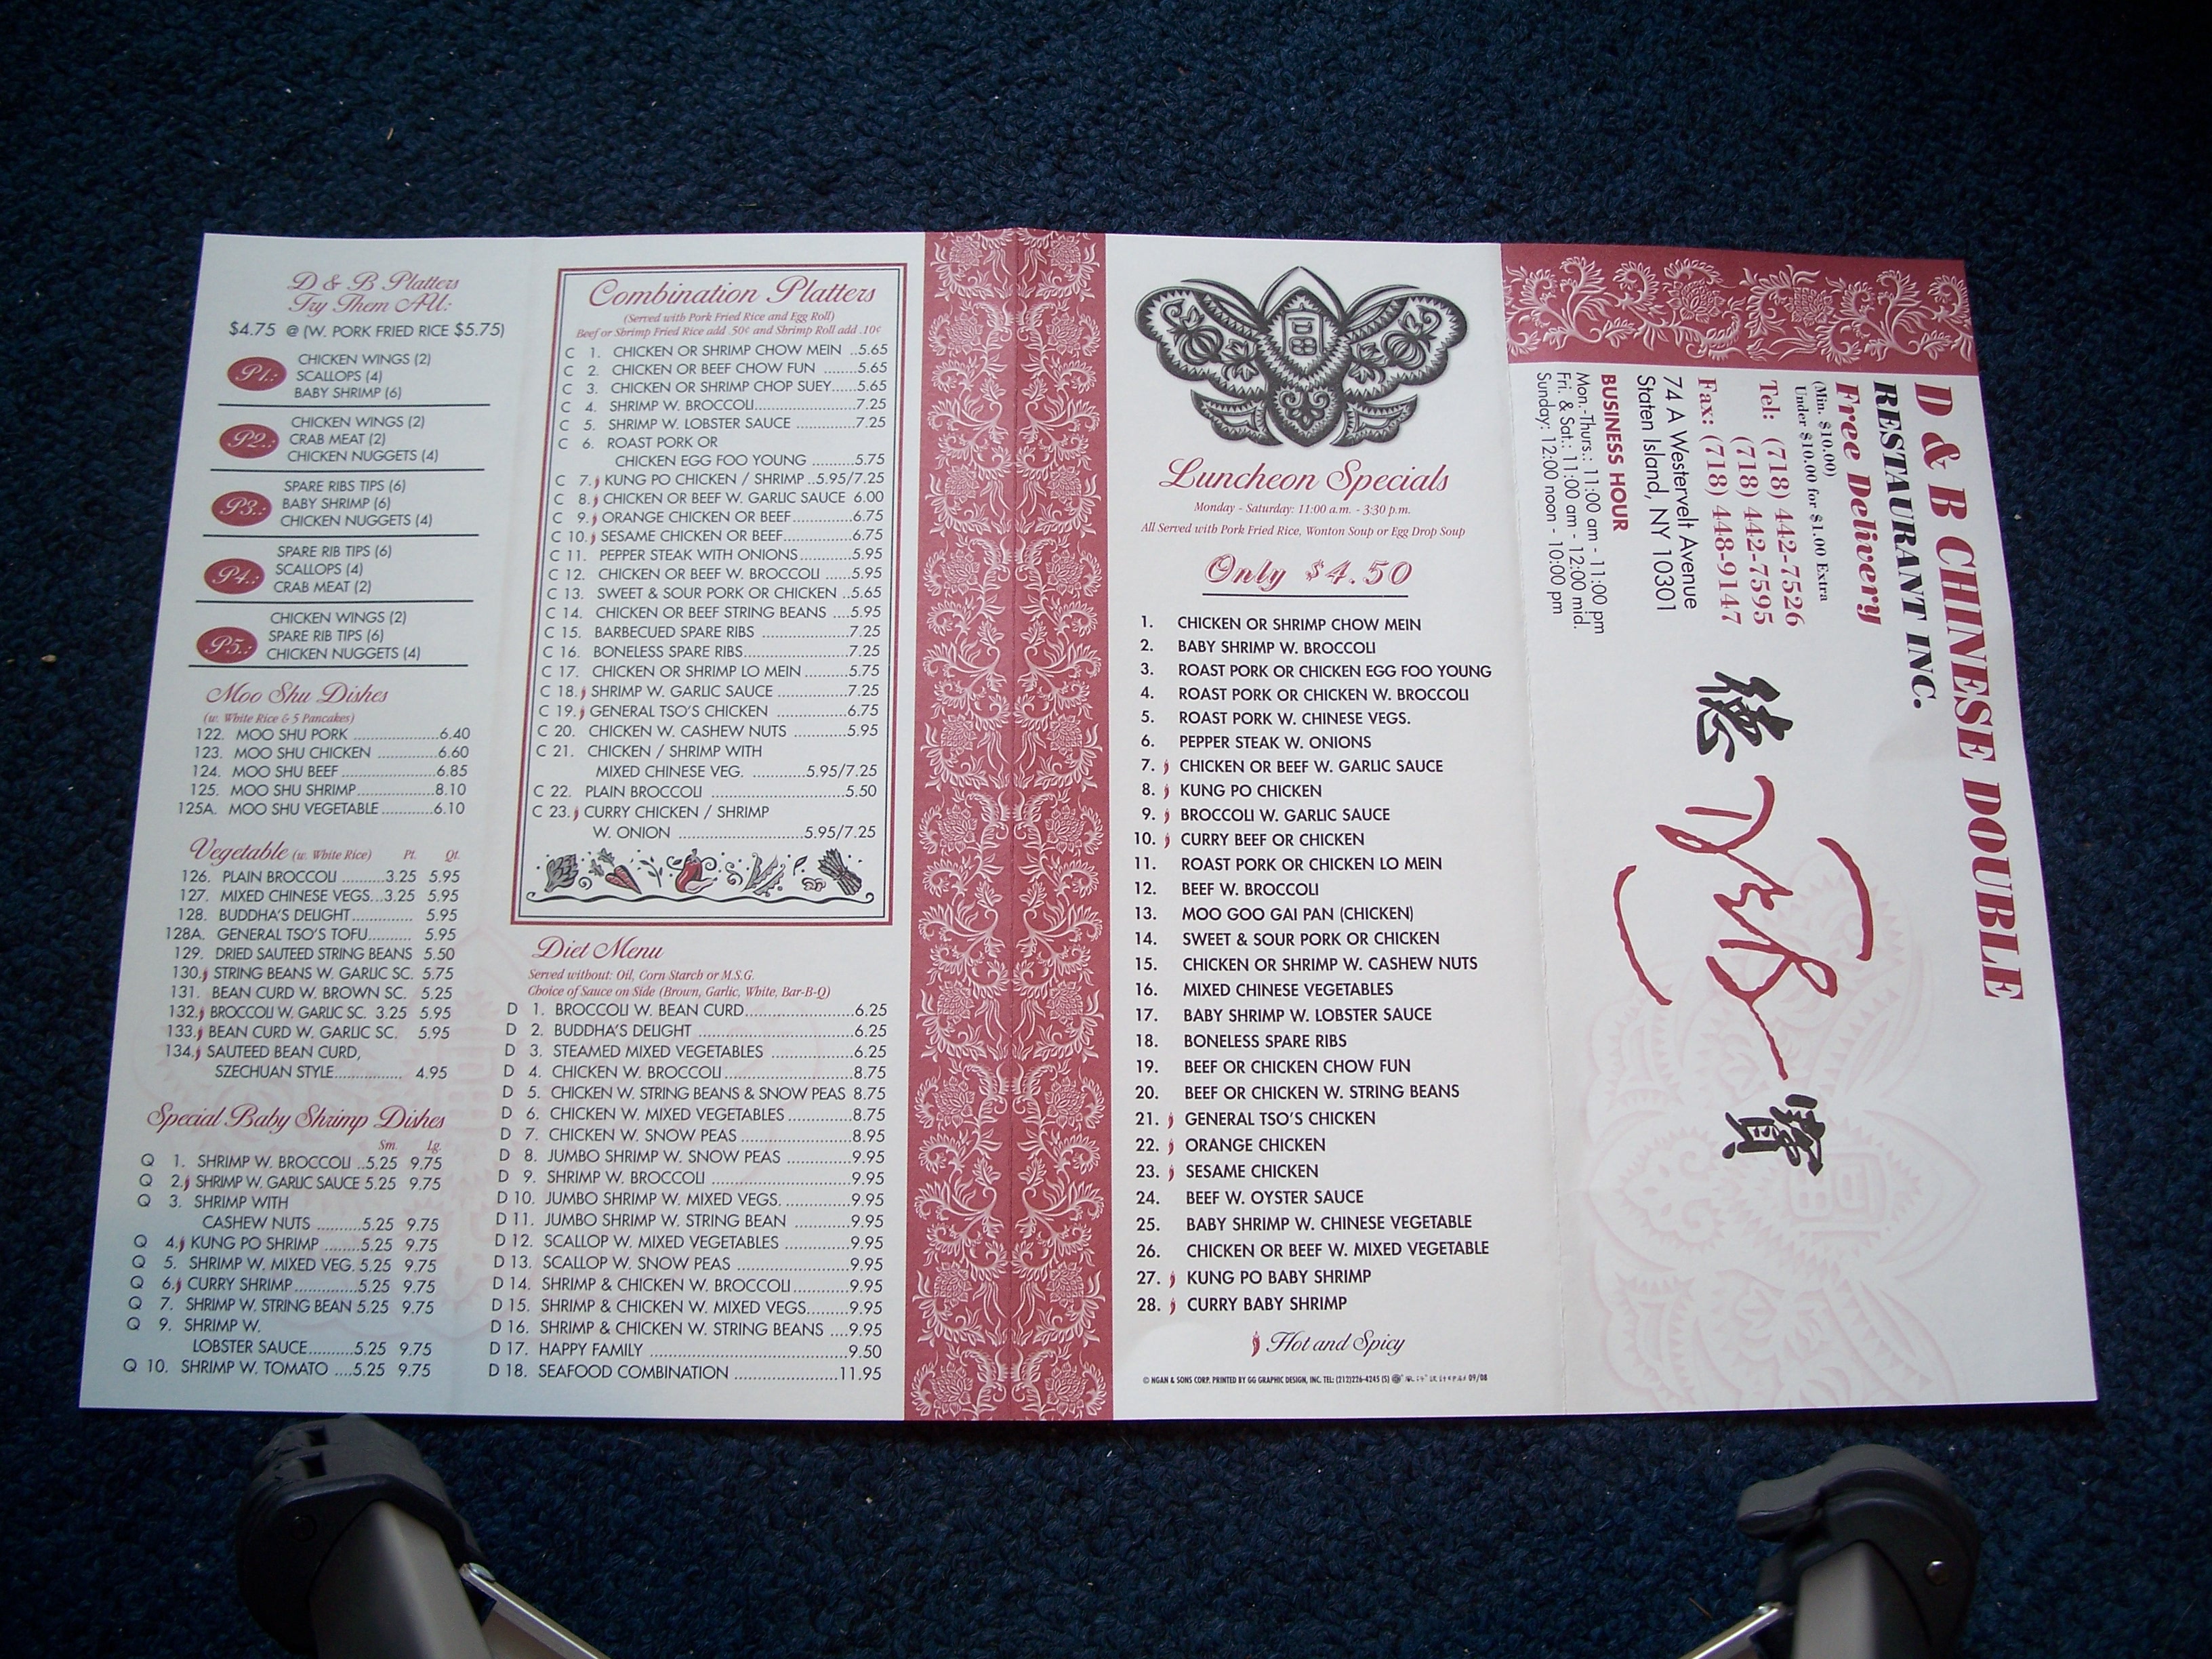 D & B Platters
Try Them All:
$4.75 @ (W. PORK FRIED RICE $5.75)
P1.:
CHICKEN WINGS (2)
SCALLOPS (4)
BABY SHRIMP (6)
P2.:
CHICKEN WINGS (2)
CRAB MEAT (2)
CHICKEN NUGGETS (4)
P3.:
SPARE RIBS TIPS (6)
BABY SHRIMP (6)
CHICKEN NUGGETS (4)
P4.:
SPARE RIB TIPS (6)
SCALLOPS (4)
CRAB MEAT (2)
P5.:
CHICKEN WINGS (2)
SPARE RIB TIPS (6)
CHICKEN NUGGETS (4)
Moo Shu Dishes
(w. White Rice & 5 Pancakes)
122. MOO SHU PORK ................6.40
123. MOO SHU CHICKEN ............6.60
124. MOO SHU BEEF..................6.85
125. MOO SHU SHRIMP...............8.10
125A. MOO SHU VEGETABLE............6.10
Vegetable (w. White Rice) Pt. Qt.
126. PLAIN BROCCOLI ..........3.25 5.95
127. MIXED CHINESE VEGS...3.25 5.95
128. BUDDHA'S DELIGHT.............. 5.95
128A. GENERAL TSO'S TOFU.......... 5.95
129. DRIED SAUTEED STRING BEANS 5.50
130. STRING BEANS W. GARLIC SC. 5.75
131. BEAN CURD W. BROWN SC. 5.25
132. BROCCOLI W. GARLIC SC. 3.25 5.95
133. BEAN CURD W. GARLIC SC. 5.95
134. SAUTEED BEAN CURD,
SZECHUAN STYLE................ 4.95
Special Baby Shrimp Dishes
Sm. Lg.
Q 1. SHRIMP W. BROCCOLI ..5.25 9.75
Q 2. SHRIMP W. GARLIC SAUCE 5.25 9.75
Q 3. SHRIMP WITH
CASHEW NUTS ..........5.25 9.75
Q 4. KUNG PO SHRIMP ........5.25 9.75
Q 5. SHRIMP W. MIXED VEG. 5.25 9.75
Q 6. CURRY SHRIMP..............5.25 9.75
Q 7. SHRIMP W. STRING BEAN 5.25 9.75
Q 9. SHRIMP W.
LOBSTER SAUCE..........5.25 9.75
Q 10. SHRIMP W. TOMATO ....5.25 9.75
Combination Platters
(Served with Pork Fried Rice and Egg Roll)
Beef or Shrimp Fried Rice add .50¢ and Shrimp Roll add .10¢
C 1. CHICKEN OR SHRIMP CHOW MEIN ..5.65
C 2. CHICKEN OR BEEF CHOW FUN .......5.65
C 3. CHICKEN OR SHRIMP CHOP SUEY......5.65
C 4. SHRIMP W. BROCCOLI....................7.25
C 5. SHRIMP W. LOBSTER SAUCE ............7.25
C 6. ROAST PORK OR
CHICKEN EGG FOO YOUNG ..........5.75
C 7. KUNG PO CHICKEN / SHRIMP ..5.95/7.25
C 8. CHICKEN OR BEEF W. GARLIC SAUCE 6.00
C 9. ORANGE CHICKEN OR BEEF............6.75
C 10. SESAME CHICKEN OR BEEF..............6.75
C 11. PEPPER STEAK WITH ONIONS...........5.95
C 12. CHICKEN OR BEEF W. BROCCOLI ......5.95
C 13. SWEET & SOUR PORK OR CHICKEN ..5.65
C 14. CHICKEN OR BEEF STRING BEANS ....5.95
C 15. BARBECUED SPARE RIBS .................7.25
C 16. BONELESS SPARE RIBS.....................7.25
C 17. CHICKEN OR SHRIMP LO MEIN .........5.75
C 18. SHRIMP W. GARLIC SAUCE ..............7.25
C 19. GENERAL TSO'S CHICKEN ..............6.75
C 20. CHICKEN W. CASHEW NUTS ...........5.95
C 21. CHICKEN / SHRIMP WITH
MIXED CHINESE VEG. ............5.95/7.25
C 22. PLAIN BROCCOLI ...........................5.50
C 23. CURRY CHICKEN / SHRIMP
W. ONION ..........................5.95/7.25
Diet Menu
Served without: Oil, Corn Starch or M.S.G.
Choice of Sauce on Side (Brown, Garlic, White, Bar-B-Q)
D 1. BROCCOLI W. BEAN CURD......................6.25
D 2. BUDDHA'S DELIGHT ................................6.25
D 3. STEAMED MIXED VEGETABLES .................6.25
D 4. CHICKEN W. BROCCOLI..........................8.75
D 5. CHICKEN W. STRING BEANS & SNOW PEAS 8.75
D 6. CHICKEN W. MIXED VEGETABLES .............8.75
D 7. CHICKEN W. SNOW PEAS .......................8.95
D 8. JUMBO SHRIMP W. SNOW PEAS .............9.95
D 9. SHRIMP W. BROCCOLI ............................9.95
D 10. JUMBO SHRIMP W. MIXED VEGS..............9.95
D 11. JUMBO SHRIMP W. STRING BEAN ...........9.95
D 12. SCALLOP W. MIXED VEGETABLES .............9.95
D 13. SCALLOP W. SNOW PEAS .......................9.95
D 14. SHRIMP & CHICKEN W. BROCCOLI...........9.95
D 15. SHRIMP & CHICKEN W. MIXED VEGS........9.95
D 16. SHRIMP & CHICKEN W. STRING BEANS ....9.95
D 17. HAPPY FAMILY ........................................9.50
D 18. SEAFOOD COMBINATION ....................11.95
Luncheon Specials
Monday - Saturday: 11:00 a.m. - 3:30 p.m.
All Served with Pork Fried Rice, Wonton Soup or Egg Drop Soup
Only $4.50
1. CHICKEN OR SHRIMP CHOW MEIN
2. BABY SHRIMP W. BROCCOLI
3. ROAST PORK OR CHICKEN EGG FOO YOUNG
4. ROAST PORK OR CHICKEN W. BROCCOLI
5. ROAST PORK W. CHINESE VEGS.
6. PEPPER STEAK W. ONIONS
7. CHICKEN OR BEEF W. GARLIC SAUCE
8. KUNG PO CHICKEN
9. BROCCOLI W. GARLIC SAUCE
10. CURRY BEEF OR CHICKEN
11. ROAST PORK OR CHICKEN LO MEIN
12. BEEF W. BROCCOLI
13. MOO GOO GAI PAN (CHICKEN)
14. SWEET & SOUR PORK OR CHICKEN
15. CHICKEN OR SHRIMP W. CASHEW NUTS
16. MIXED CHINESE VEGETABLES
17. BABY SHRIMP W. LOBSTER SAUCE
18. BONELESS SPARE RIBS
19. BEEF OR CHICKEN CHOW FUN
20. BEEF OR CHICKEN W. STRING BEANS
21. GENERAL TSO'S CHICKEN
22. ORANGE CHICKEN
23. SESAME CHICKEN
24. BEEF W. OYSTER SAUCE
25. BABY SHRIMP W. CHINESE VEGETABLE
26. CHICKEN OR BEEF W. MIXED VEGETABLE
27. KUNG PO BABY SHRIMP
28. CURRY BABY SHRIMP
Hot and Spicy
© NGAN & SONS CORP. PRINTED BY GG GRAPHIC DESIGN, INC. TEL: (212)226-4245 (S) 09/08
D & B CHINESE DOUBLE
RESTAURANT INC.
Free Delivery
(Min. $10.00)
Under $10.00 for $1.00 Extra
Tel: (718) 442-7526
(718) 442-7595
Fax: (718) 448-9147
74 A Westervelt Avenue
Staten Island, NY 10301
BUSINESS HOUR
Mon.-Thurs.: 11:00 am - 11:00 pm
Fri. & Sat.: 11:00 am - 12:00 mid.
Sunday: 12:00 noon - 10:00 pm
德 D&B 寶